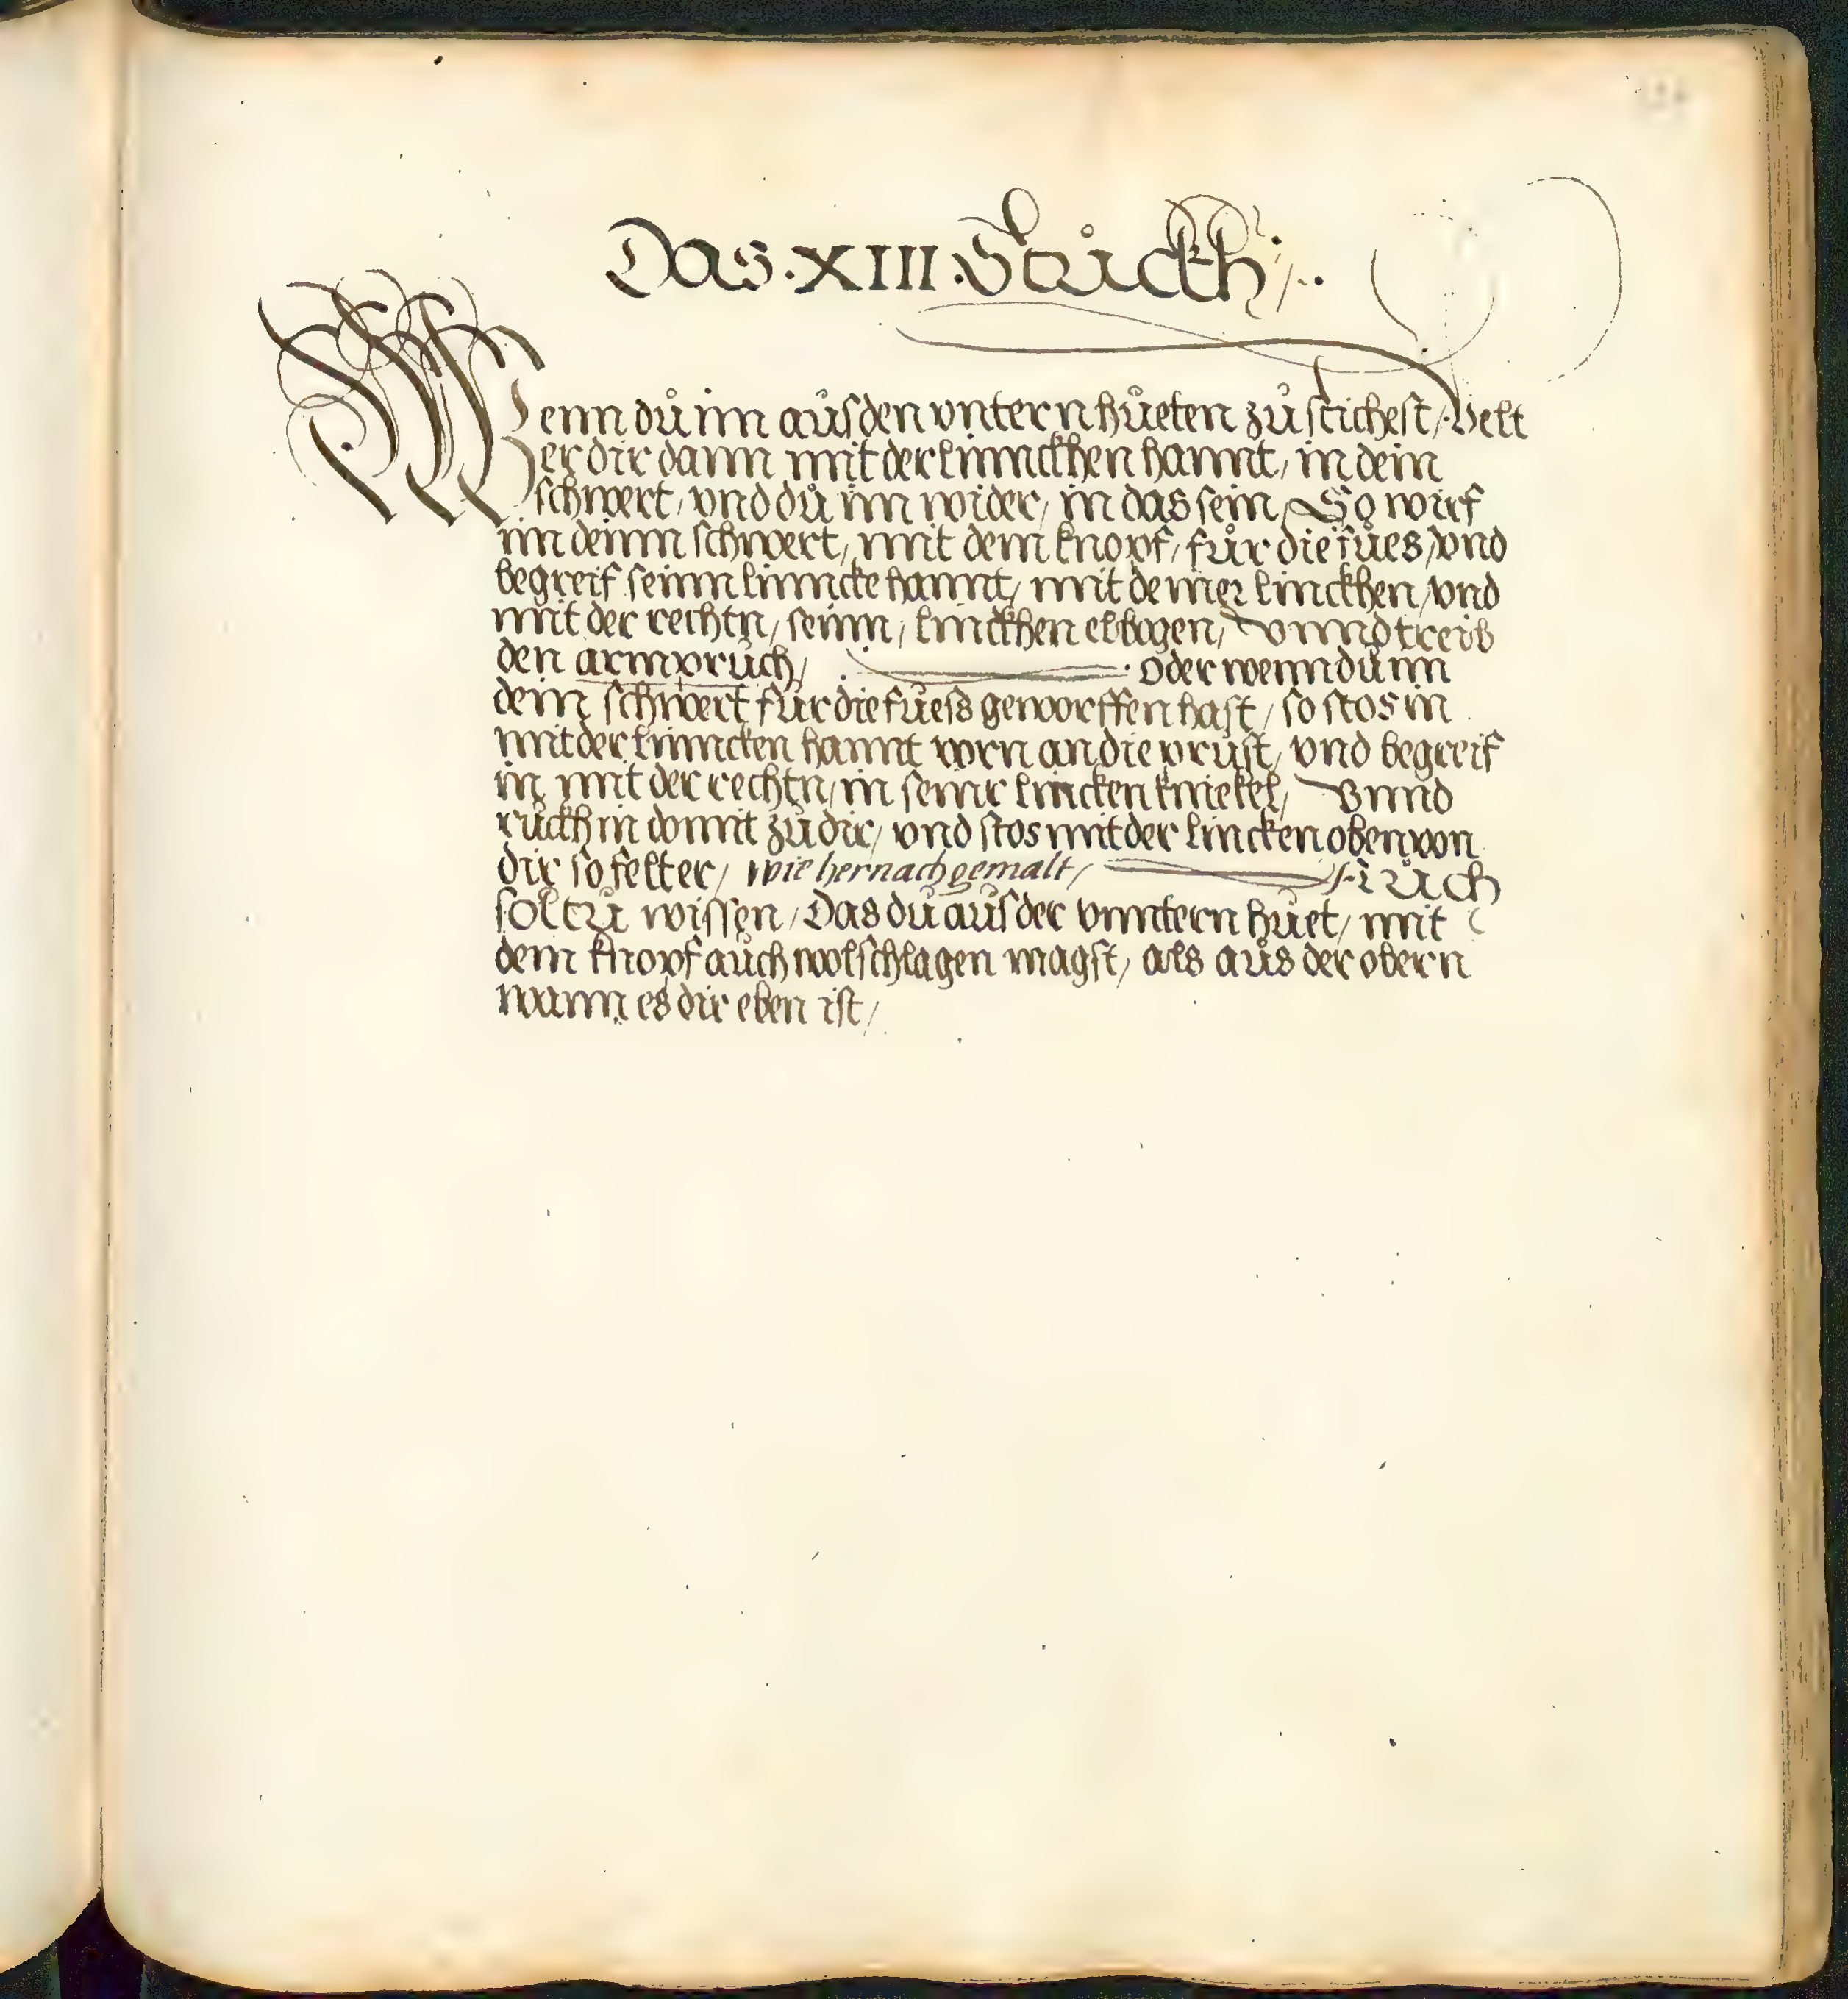 Das .XIII. Stuckh /..
Wenn dů im aůs den vntern hůeten zů stichest / velt
er dir dann mit der linnckhen hannt, in dein
schwert, vnd dů im wider, in das sein, So wirf
im deinn schwert, mit dem knopf, fůr die fůes, vnd
begreif seinn linncke hannt, mit deiner linckhen, vnd
mit der rechtn, seinn, linckhen elbogen, vnnd treib
den armprůch, oder wenn dů im
dein schwert fůr die fůess geworffen hast, so stos in
mit der linncken hannt vorn an die průst, vnd begreif
in, mit der rechtn, in seinr lincken kniekel, vnnd
růckh in domit zů dir, vnd stos mit der lincken oben von
dir so felter, wie hernach gemalt, Aůch
soltů wissen, Das dů aůs der vnntern hůet, mit
dem knopf aůch wol schlagen magst, als aůs der obern
wann es dir eben ist,